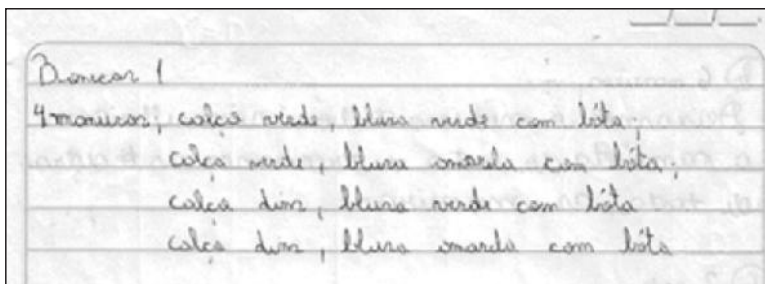 Bonecas 1
4 maneiras, calça verde, blusa verde com bóta;
calça verde, blusa amarela com bóta,
calça dins, blusa verde com bóta
calça dins, blusa amarela com bóta